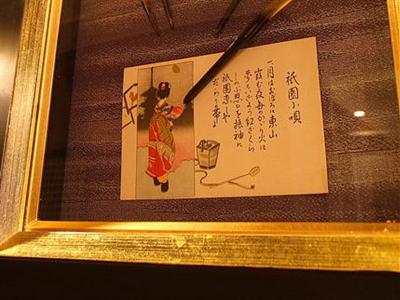 祇園小唄
一 月はおぼろに東山
霞む夜毎のかゞり火に
夢もいざよう紅ざくら
しのぶ思ひを振袖に
祇園恋しや
だらりの帯よ